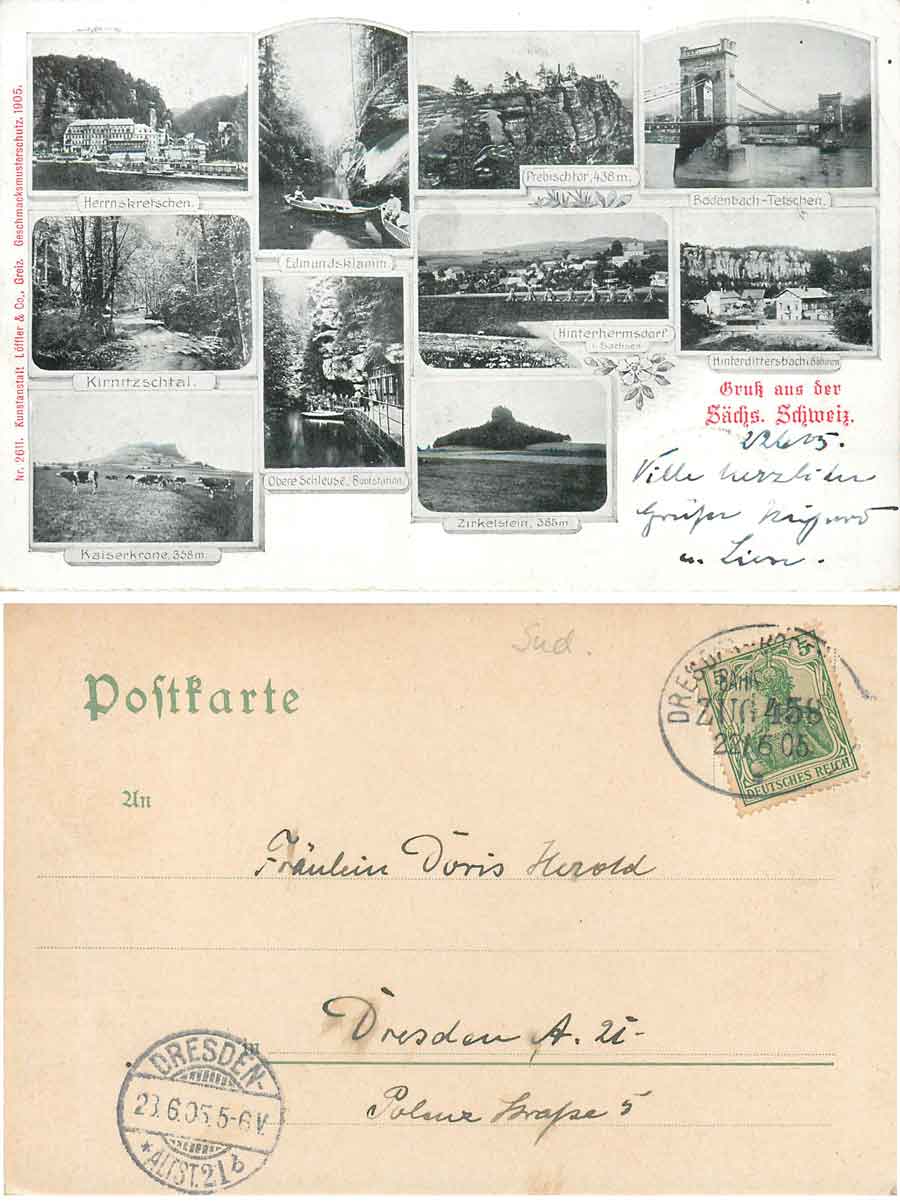 Nr. 2611. Kunstanstalt Löffler & Co., Greiz. Geschmacksmusterschutz. 1905.
Herrnskretschen.
Edmundsklamm.
Prebischtor, 436 m.
Bodenbach-Tetschen.
Kirnitzschtal.
Obere Schleuse, Bootstation.
Hinterhermsdorf
i. Sachsen
Hinterdittersbach i. Böhmen
Kaiserkrone, 358 m.
Zirkelstein, 385 m
Gruß aus der
Sächs. Schweiz.
22.6.05.
Viele herzlichen
Grüße
u.
Sud.
Postkarte
DRESDEN
BAHN
ZUG 458
22/6 05
5 5
DEUTSCHES REICH
An
Fräulein Doris Herold
in Dresden A. 21
Polenz Straße 5
DRESDEN-
23.6.05.5-6V.
*ALTST.21b